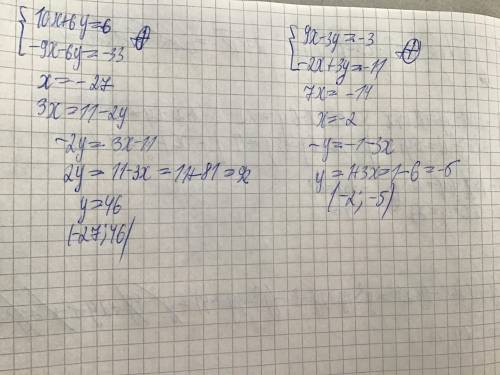 10x+6y=6
-9x-6y=-33
x=-27
3x=11-2y
-2y=3x-11
2y=11-3x=11+81=92
y=46
(-27;46)
9x-3y=-3
-2x+3y=-11
7x=-14
x=-2
-y=-1-3x
y=1+3x=1-6=-5
(-2;-5)